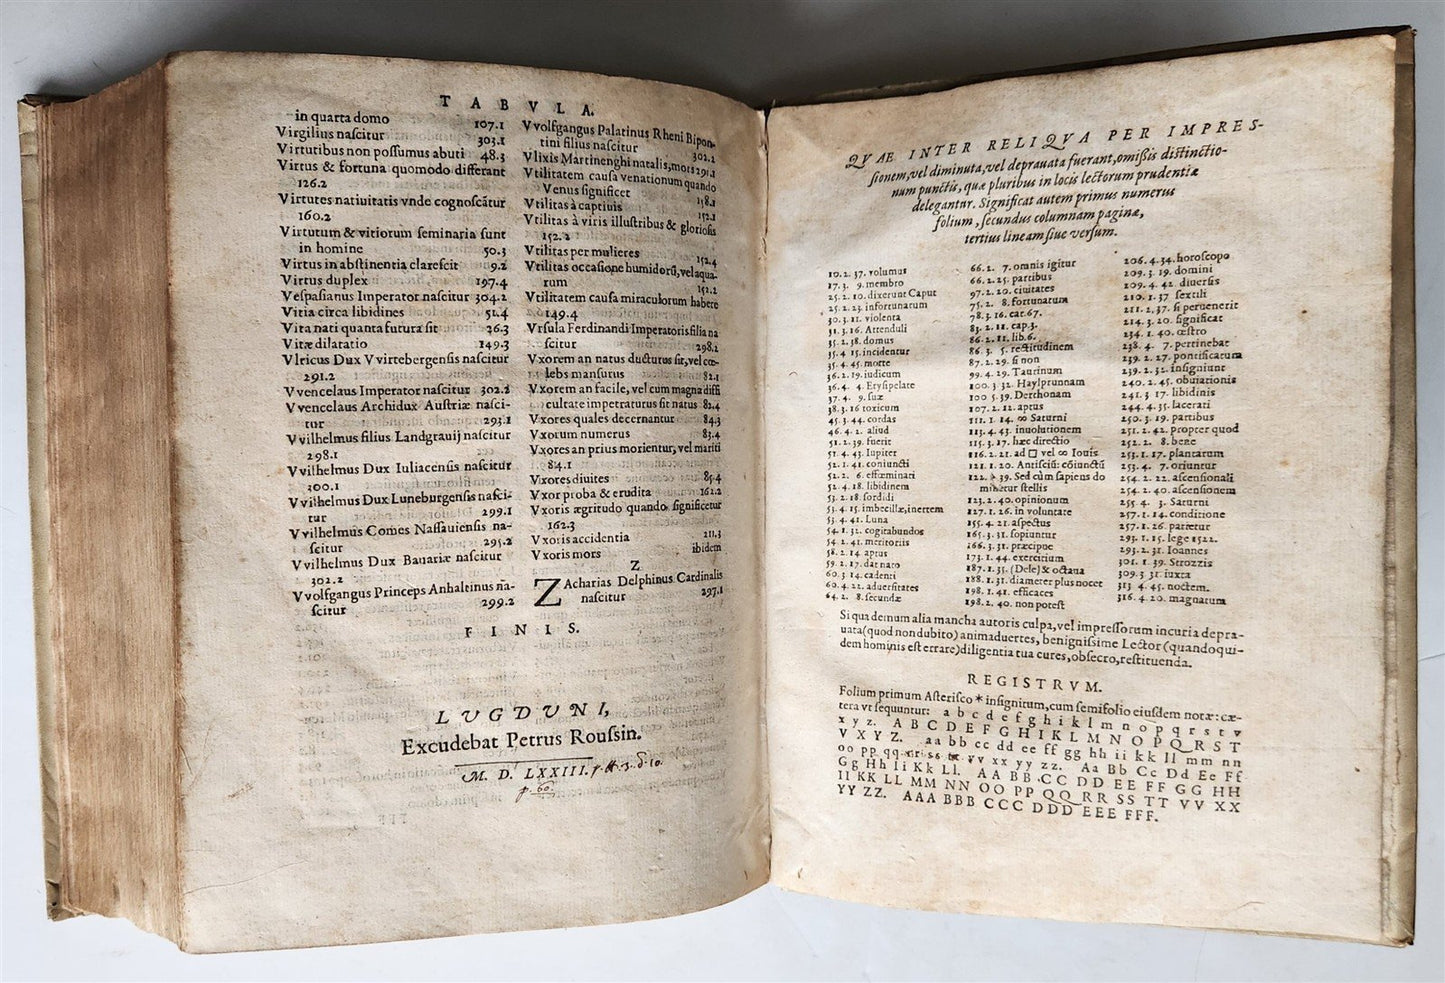 TABVLA.
in quarta domo 107.1
Virgilius nascitur 303.1
Virtutibus non possumus abuti 48.3
Virtus & fortuna quomodo differant
126.2
Virtutes natiuitatis vnde cognoscãtur
160.2
Virtutum & vitiorum seminaria sunt
in homine 50.3
Virtus in abstinentia clarescit 9.2
Virtus duplex 197.4
Vespasianus Imperator nascitur 304.2
Vitia circa libidines 51.4
Vita nati quanta futura sit 36.3
Vitæ dilatatio 149.3
Vlricus Dux Vvirtebergensis nascitur
291.2
Vvencelaus Imperator nascitur 302.2
Vvencelaus Archidux Austriæ nasci-
tur 293.1
Vvilhelmus filius Landgrauij nascitur
298.1
Vvilhelmus Dux Iuliacensis nascitur
300.1
Vvilhelmus Dux Luneburgensis nasci-
tur 299.1
Vvilhelmus Comes Nassauiensis na-
scitur 295.2
Vvilhelmus Dux Bauariæ nascitur
302.2
Vvolfgangus Princeps Anhaltinus na-
scitur 299.2
Vvolfgangus Palatinus Rheni Bipon-
tini filius nascitur 302.2
Vlixis Martinenghi natalis, mors 291.1
Vtilitatem causa venationum quando
Venus significet 158.1
Vtilitas à captiuis 152.1
Vtilitas à viris illustribus & gloriosis
152.2
Vtilitas per mulieres 152.4
Vtilitas occasione humidorũ, vel aqua-
rum 152.2
Vtilitatem causa miraculorum habere
149.4
Vrsula Ferdinandi Imperatoris filia na
scitur 298.2
Vxorem an natus ducturus sit, vel cœ-
lebs mansurus 82.1
Vxorem an facile, vel cum magna diffi
cultate impetraturus sit natus 82.4
Vxores quales decernantur 84.3
Vxorum numerus 83.4
Vxores an prius morientur, vel mariti
84.1
Vxores diuites 85.4
Vxor proba & erudita 162.2
Vxoris ægritudo quando significetur
162.3
Vxoris accidentia 211.3
Vxoris mors ibidem
Z
ZAcharias Delphinus Cardinalis
nascitur 297.1
FINIS.
LUGDUNI,
Excudebat Petrus Roussin.
M. D. LXXIII.
p. 60.
QVAE INTER RELIQVA PER IMPRES-
sionem, vel diminuta, vel deprauata fuerant, omißis distinctio-
num punctis, quæ pluribus in locis lectorum prudentiæ
delegantur. Significat autem primus numerus
folium, secundus columnam paginæ,
tertius lineam siue versum.
10. 2. 37. volumus
17. 3. 9. membro
25. 2. 10. dixerunt Caput
25. 2. 23. infortunatum
30. 3. 11. violenta
31. 3. 16. Attenduli
35. 2. 38. domus
35. 4 15. incidentur
35. 4. 45. morte
36. 2. 19. iudicum
36. 4. 4. Erysipelate
37. 4. 9. suæ
38. 3. 16 toxicum
45. 3. 44. cordas
46. 4. 2. aliud
51. 2. 39. fuerit
51. 4. 43. Iupiter
52. 1. 41. coniuncti
52. 2. 6. effœminati
52. 4. 18. libidinem
53. 2. 18. sordidi
53. 4. 15. imbecillæ, inertem
53. 4. 41. Luna
54. 1. 32. cogitabundos
54. 2. 41. meritoriis
58. 2. 14 aptus
59. 2. 17. dat nato
60. 3. 14. cadenti
60. 4. 22. aduersitates
64. 2. 8. secundæ
66. 2. 7. omnis igitur
66. 2. 25. partibus
97. 2. 20. ciuitates
75. 2. 8. fortunatum
78. 3. 16. cat. 67.
83. 2. 11. cap. 3.
86. 2. 11. lib. 6.
86. 3. 5. rectitudinem
87. 2. 29. si non
99. 4. 29. Taurinum
100. 3. 32. Haylprunnam
100 5. 39. Derthonam
107. 2. 11. aptus
111. 1. 14. ∞ Saturni
113. 4. 43. inuolutionem
115. 3. 17. hæc directio
116. 2. 21. ad □ vel ∞ Iouis
121. 1. 20. Antisciũ: cõiunctũ
122. 2 39. Sed cùm sapiens do
minetur stellis
123. 2. 40. opinionum
127. 1. 26. in voluntate
155. 4. 21. aspectus
165. 3. 31. sopiuntur
166. 3. 31. præcipue
173. 1. 44. exercitium
187. 1. 35. (Dele) & octaua
188. 1. 31. diameter plus nocet
198. 1. 41. efficaces
198. 2. 40. non potest
206. 4. 34. horoscopo
209. 3. 19. domini
209. 4. 42. diuersis
210. 1. 37 sextili
211. 2. 37. si peruenerit
214. 3. 20. significat
234. 1. 40. œstro
238. 4. 7. pertinebat
239. 2. 27. pontificatum
239. 2. 32. insigniunt
240. 2. 45. obuiationis
241. 3 17. libidinis
244. 4. 35. lacerati
250. 3. 19. partibus
251. 2. 42. propter quod
252. 2. 8. bene
253. 1. 17. plantarum
253. 4. 7. oriuntur
254. 2. 22. ascensionali
254. 2. 40. ascensionem
255. 4. 3. Saturni
257. 1. 14. conditione
257. 1. 26. parietur
293. 1. 15. lege 1522.
293. 2. 31. Ioannes
301. 1. 39. Strozzis
309. 3. 31. iuxta
313. 4. 45. noctem.
316. 4. 20. magnatum
Si qua demum alia mancha autoris culpa, vel impressorum incuria depra-
uata (quod non dubito) animaduertes, benignissime Lector (quandoqui-
dem hominis est errare) diligentia tua cures, obsecro, restituenda.
REGISTRVM.
Folium primum Asterisco * insignitum, cum semifolio eiusdem notæ: cæ-
tera vt sequuntur: a b c d e f g h i k l m n o p q r s t v
x y z. A B C D E F G H I K L M N O P Q R S T
V X Y Z. aa bb cc dd ee ff gg hh ii kk ll mm nn
oo pp qq rr ss tt vv xx yy zz. Aa Bb Cc Dd Ee Ff
Gg Hh Ii Kk Ll. AA BB CC DD EE FF GG HH
II KK LL MM NN OO PP QQ RR SS TT VV XX
YY ZZ. AAA BBB CCC DDD EEE FFF.